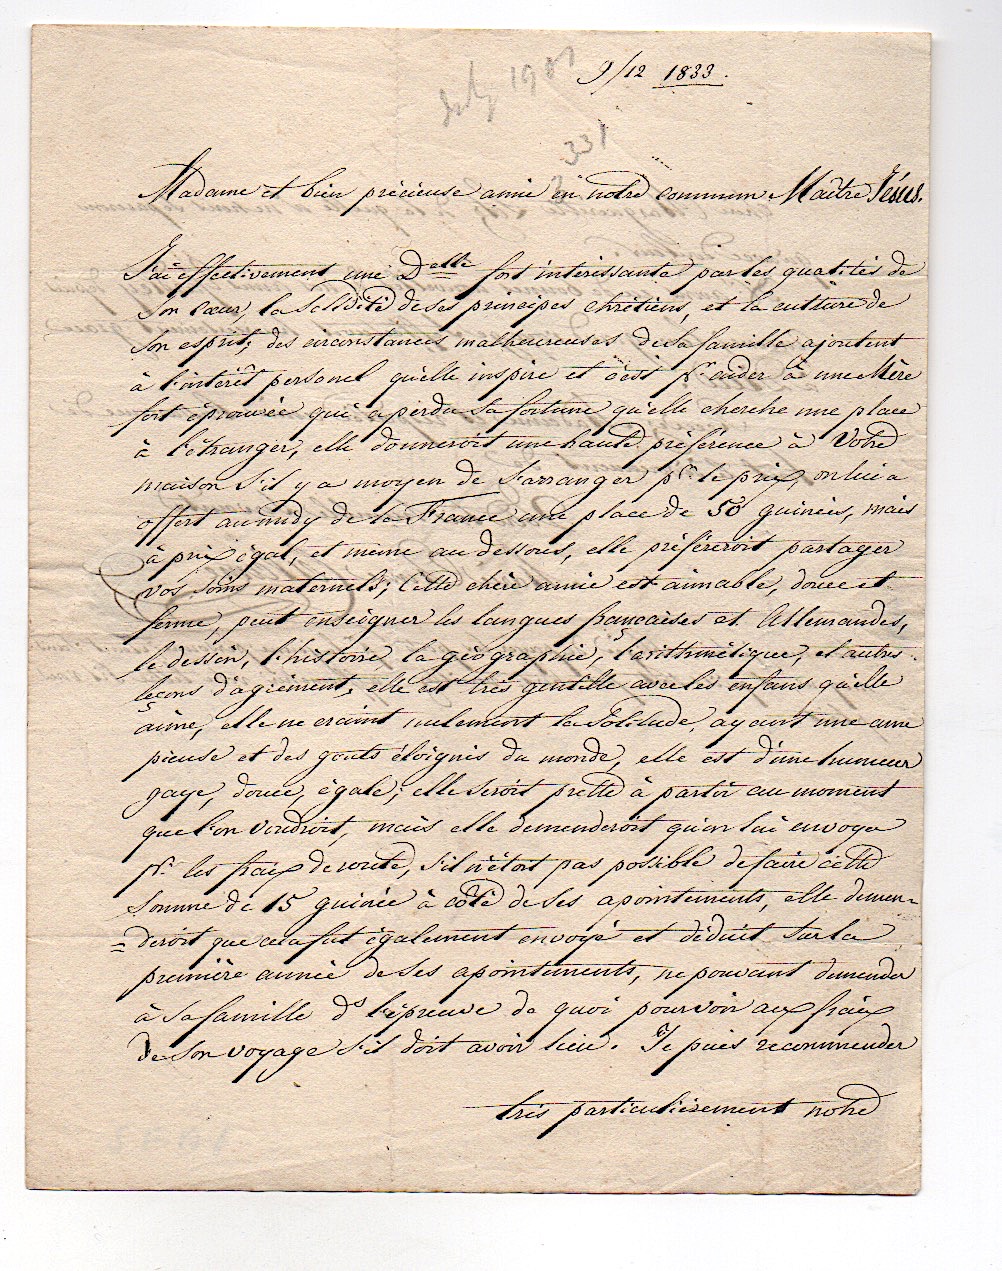 9/12 1833.
331
Madame et bien précieuse amie en notre commun Maître Jésus.
J'ai effectivement une Delle fort intéressante par les qualités de
son cœur, la solidité de ses principes chrétiens, et la culture de
son esprit; des circonstances malheureuses de sa famille ajoutent
à l'intérêt personel qu'elle inspire et c'est pr. aider à une Mère
fort éprouvée qui a perdu sa fortune qu'elle cherche une place
à l'étranger, elle donneroit une haute préférence à Votre
maison s'il y a moyen de s'arranger pr. le prix, on lui a
offert au midy de la France une place de 50 guinées, mais
à prix égal, et même au dessous, elle préféreroit partager
vos soins maternels; cette chère amie est aimable, douce et
ferme, peut enseigner les langues françaises et Allemandes,
le dessin, l'histoire, la géographie, l'arithmétique, et autres
leçons d'agrément; elle est très gentille avec les enfans qu'elle
aime, elle ne craint nulement la solitude, ayant une ame
pieuse et des gouts éloignés du monde, elle est d'une humeur
gaye, douce, égale; elle seroit prette à partir au moment
que l'on voudroit, mais elle demenderoit qu'on lui envoya
pr. les fraix de route, s'il n'étoit pas possible de faire cette
somme de 15 guinée à côté de ses apointements, elle demen=
=deroit que cela fut également envoyé et déduit sur la
première année de ses apointements, ne pouvant demender
à sa famille ds l'épreuve de quoi pourvoir aux fraix
de son voyage s'il doit avoir lieu. Je puis recommender
très particulièrement notre